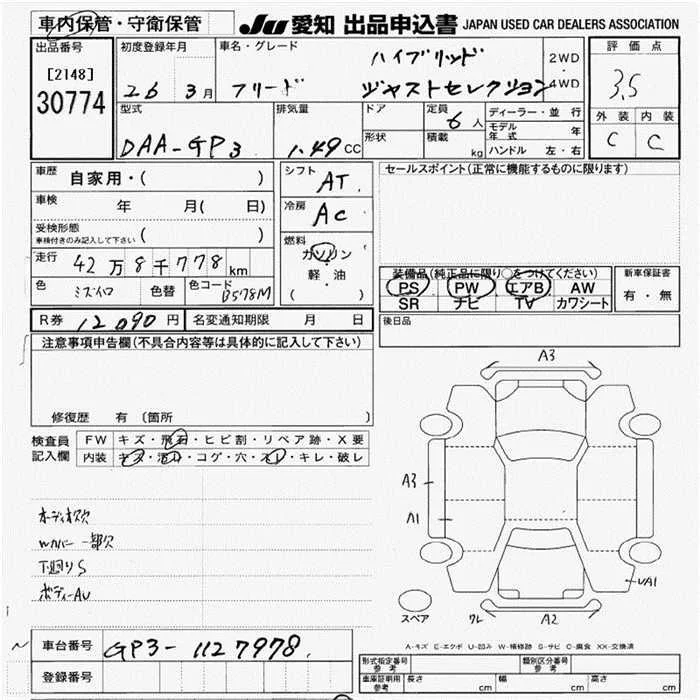 車内保管・守衛保管
JU 愛知 出品申込書 JAPAN USED CAR DEALERS ASSOCIATION
出品番号 [2148] 30774
初度登録年月 26 3月
車名・グレード フリード ハイブリッド ジャストセレクション
2WD・4WD
評価点 3.5
外装 内装
C C
型式 DAA-GP3
排気量 1.49 CC
ドア
形状
定員 6人
積載 kg
ディーラー・並行
モデル年式 年
ハンドル 左・右
車歴 自家用・( )
車検 年 月( 日)
受検形態 車検付きのみ記入して下さい ( )
走行 42万8千778km
色 ミズイロ 色替 色コード B578M
シフト AT
冷房 AC
燃料 ガソリン・軽油 ( )
セールスポイント(正常に機能するものに限ります)
装備品(純正品に限り○をつけてください)
PS PW エアB AW
SR ナビ TV カワシート
新車保証書
有・無
R券 12090円 名変通知期限 月 日
後日品
注意事項申告欄(不具合内容等は具体的に記入して下さい)
修復歴 有 〔箇所
検査員記入欄
FW キズ・飛石・ヒビ割・リペア跡・X要
内装 キズ・汚レ・コゲ・穴・スレ・キレ・破レ
オーディオ欠
Wカバー一部欠
下廻りS
ボディーAU
A3
A3
A1
UA1
スペア
ワレ A2
A-キズ E-エクボ U-凹み W-補修跡 S-サビ C-腐食 XX-交換済
車台番号 GP3-1127978
登録番号
形式指定番号 参考
類別区分番号 参考
車庫証明用 参考 長さ cm 幅 cm 高さ cm